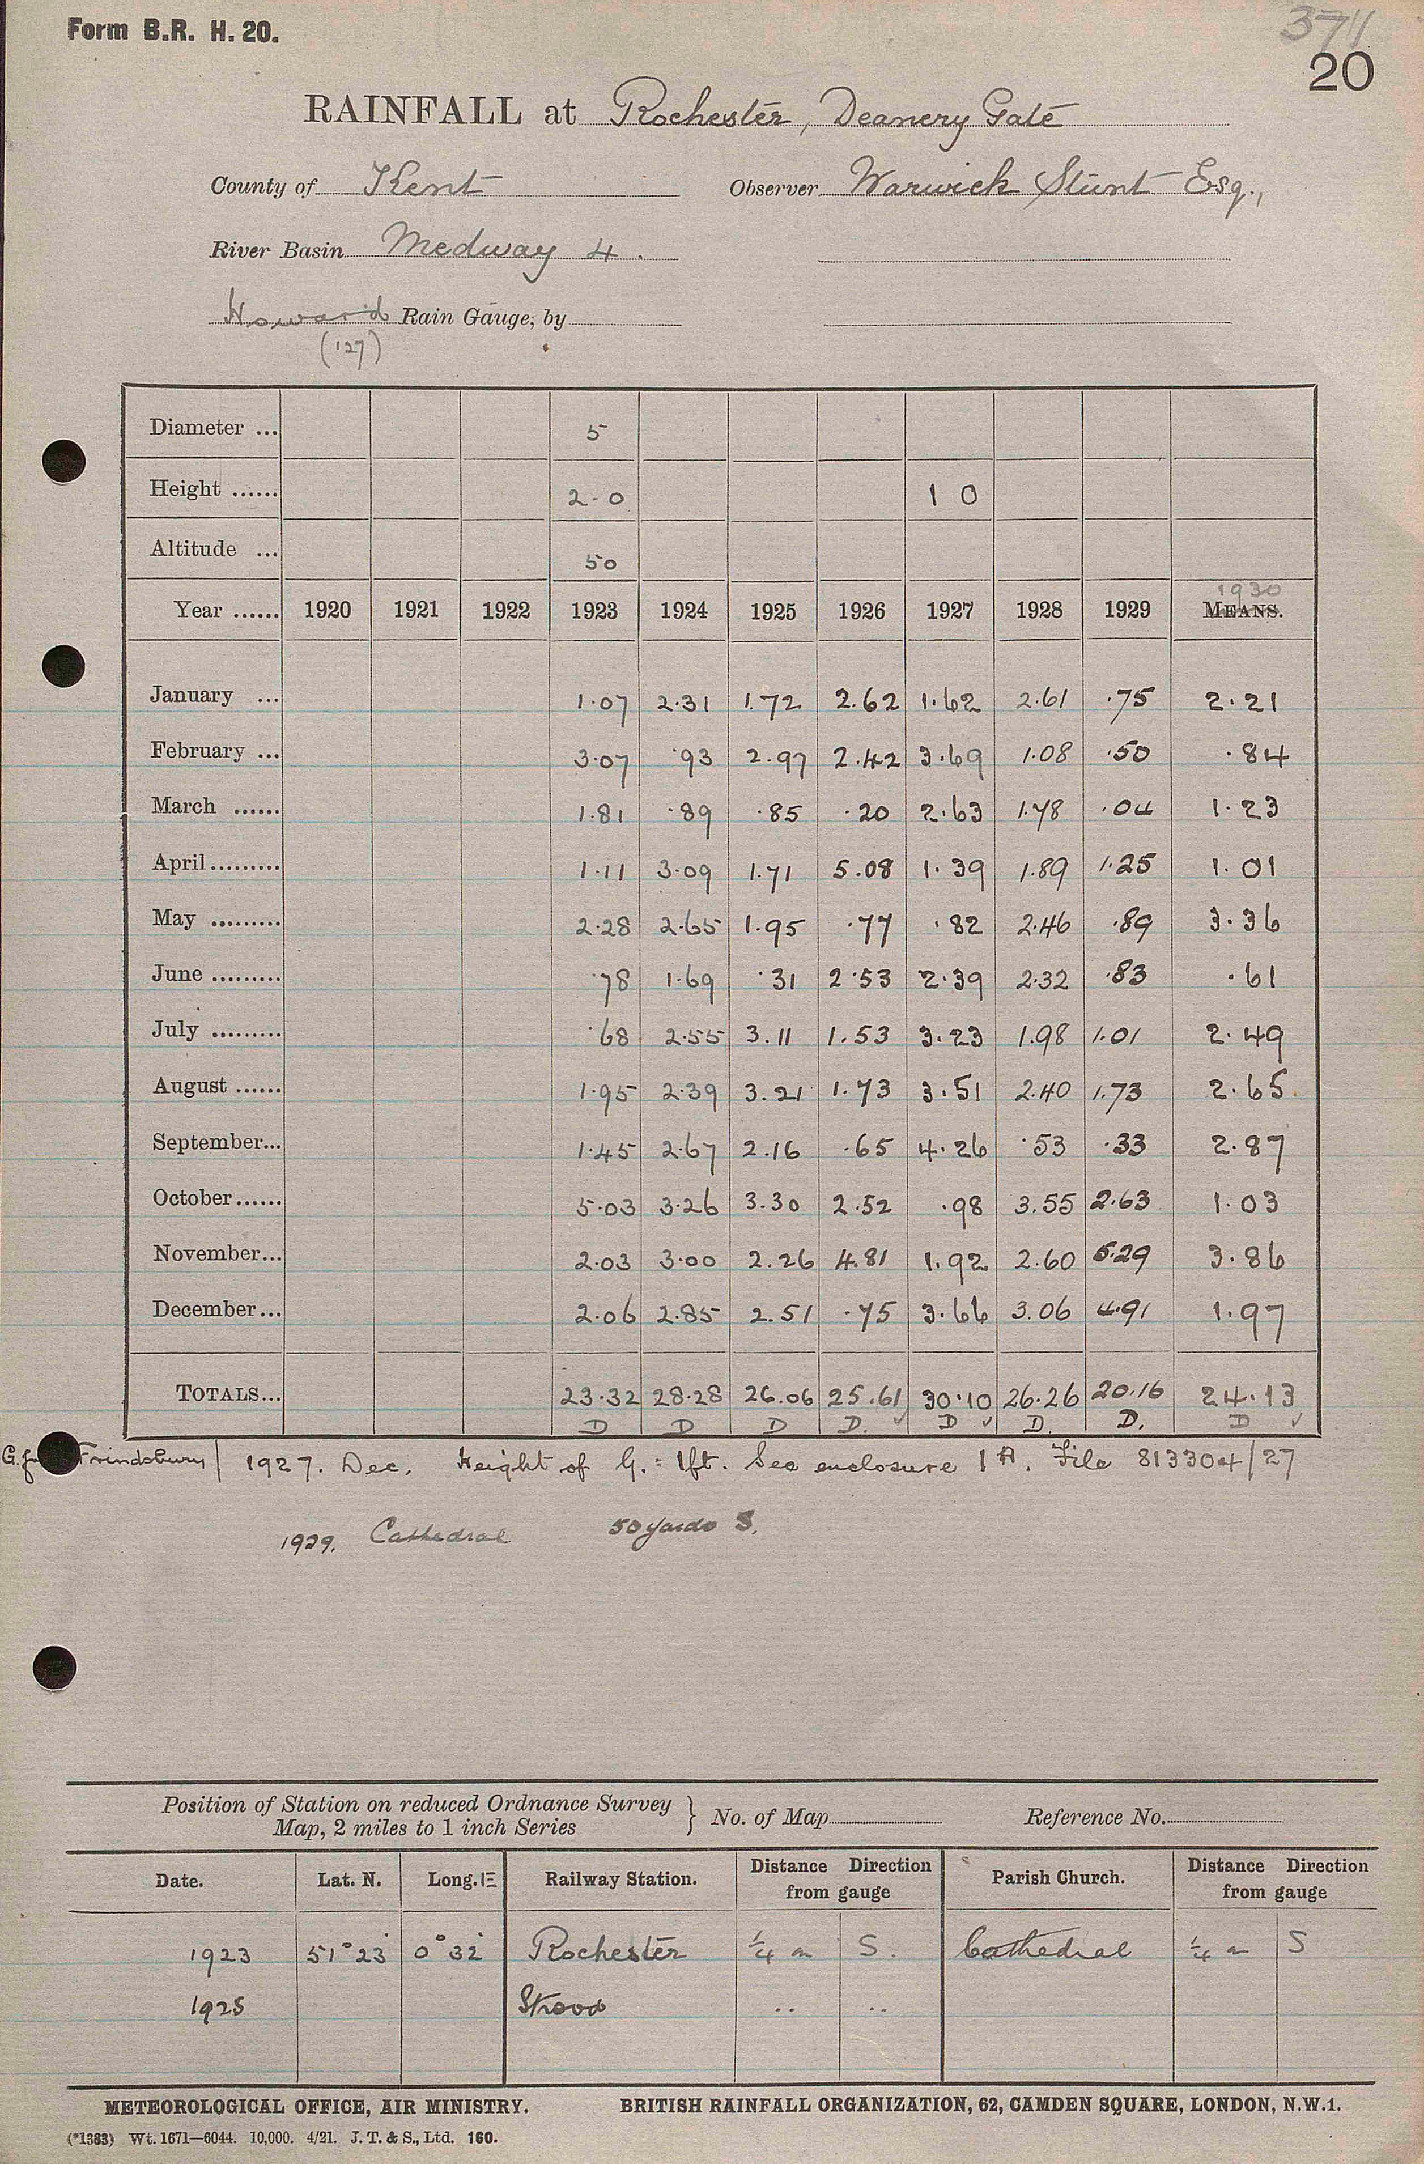 Form B.R. H. 20.
3711
20
RAINFALL at Rochester, Deanery Gate
County of Kent Observer Warwick Stunt Esq.,
River Basin Medway 4.
Howard Rain Gauge, by
(127)
Diameter ... 5
Height ...... 2-0 1 0
Altitude ... 50
1930
Year ...... 1920 1921 1922 1923 1924 1925 1926 1927 1928 1929 MEANS.
January ... 1.07 2.31 1.72 2.62 1.62 2.61 .75 2.21
February ... 3.07 .93 2.97 2.42 3.69 1.08 .50 .84
March ...... 1.81 .89 .85 .20 2.63 1.78 .04 1.23
April ......... 1.11 3.09 1.71 5.08 1.39 1.89 1.25 1.01
May ......... 2.28 2.65 1.95 .77 .82 2.46 .89 3.36
June ......... .78 1.69 .31 2.53 2.39 2.32 .83 .61
July ......... .68 2.55 3.11 1.53 3.23 1.98 1.01 2.49
August ...... 1.95 2.39 3.21 1.73 3.51 2.40 1.73 2.65
September... 1.45 2.67 2.16 .65 4.26 .53 .33 2.87
October ...... 5.03 3.26 3.30 2.52 .98 3.55 2.63 1.03
November... 2.03 3.00 2.26 4.81 1.92 2.60 5.29 3.86
December ... 2.06 2.85 2.51 .75 3.66 3.06 4.91 1.97
TOTALS... 23.32 28.28 26.06 25.61 30.10 26.26 20.16 24.13
D D D D. D D. D. D
Frindsbury 1927. Dec. Height of G. = 1ft. See enclosure 1A. File 813304/27
1929. Cathedral 50 yards S.
Position of Station on reduced Ordnance Survey
Map, 2 miles to 1 inch Series } No. of Map Reference No.
Date. Lat. N. Long. E Railway Station. Distance Direction from gauge Parish Church. Distance Direction from gauge
1923 51°23' 0°32' Rochester ¼ m S. Cathedral ¼ m S
1925 Strood .. ..
METEOROLOGICAL OFFICE, AIR MINISTRY. BRITISH RAINFALL ORGANIZATION, 62, CAMDEN SQUARE, LONDON, N.W.1.
(*1383) Wt. 1671—6044. 10,000. 4/21. J. T. & S., Ltd. 160.